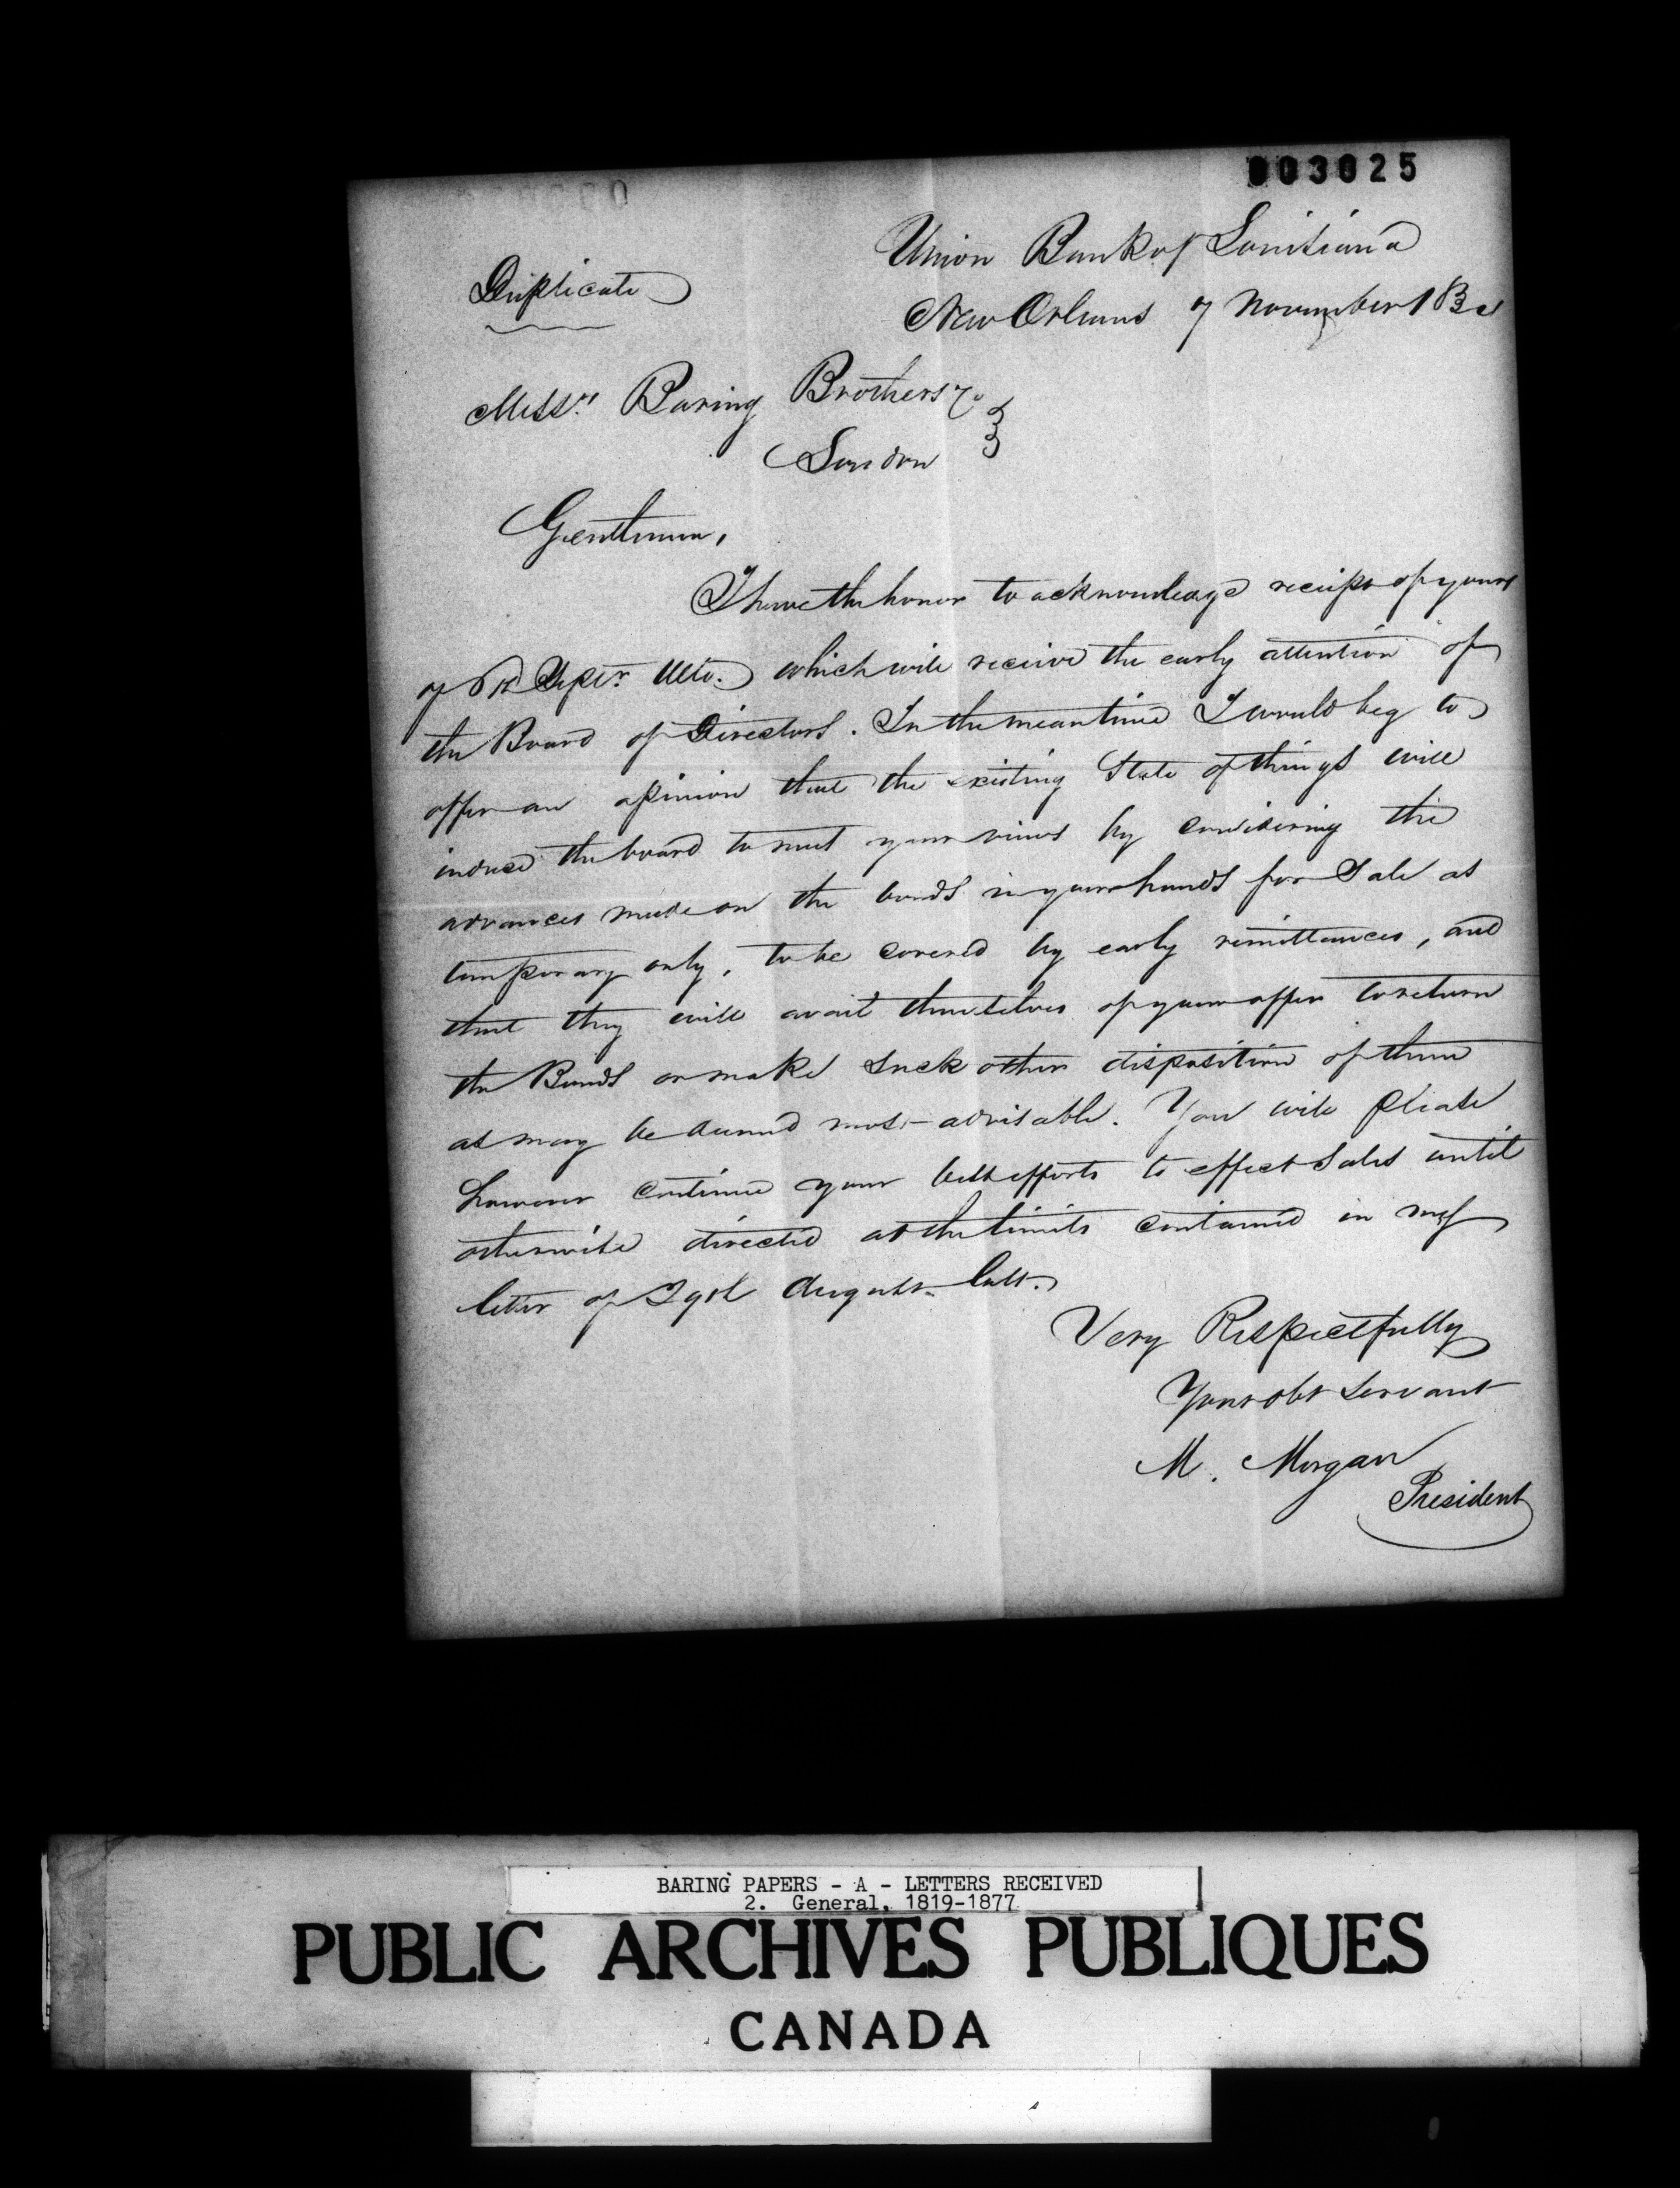 003025
Union Bank of Louisiana
Duplicate
New Orleans 7 November 183
Messrs Baring Brothers & Co
London
Gentlemen,
I have the honor to acknowledge receipt of yours
of Septr. Ulto. which will receive the early attention of
the Board of Directors. In the mean time I would beg to
offer an opinion that the existing State of things will
induce the board to meet your views by considering the
advances made on the bonds in your hands for Sale as
temporary only, to be covered by early remittances, and
that they will avail themselves of your offer to return
the Bonds or make such other disposition of them
as may be deemed most advisable. You will please
however continue your best efforts to effect Sales until
otherwise directed at the limits contained in my
letter of August last.
Very Respectfully
Your obt Servant
M. Morgan
President
BARING PAPERS - A - LETTERS RECEIVED
2. General, 1819-1877
PUBLIC ARCHIVES PUBLIQUES
CANADA